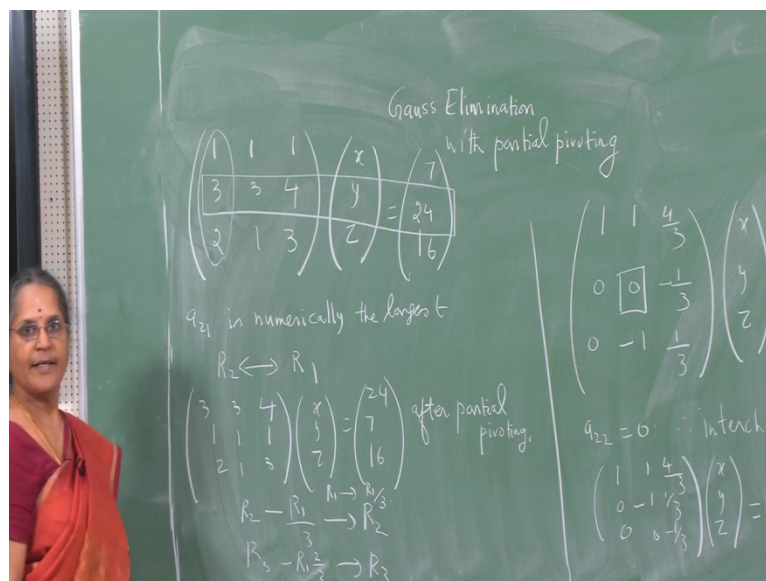 Gauss Elimination
with partial pivoting
1 1 1 x 7
3 3 4 y = 24
2 1 3 z 16
a21 is numerically the largest
R2 ↔ R1
3 3 4 x 24
1 1 1 y = 7
2 1 3 z 16
after partial
pivoting.
R1 → R1/3
R2 − R1/3 → R2
R3 − R1 2/3 → R3
1 1 4/3 x
0 0 −1/3 y
0 −1 1/3 z
a22 = 0 ∴ interch
1 1 4/3 x
0 −1 1/3 y =
0 0 −1/3 z